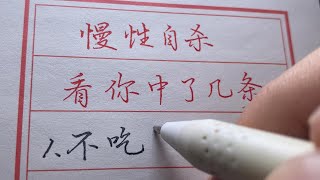 慢性自杀
看你中了几条
1、不吃